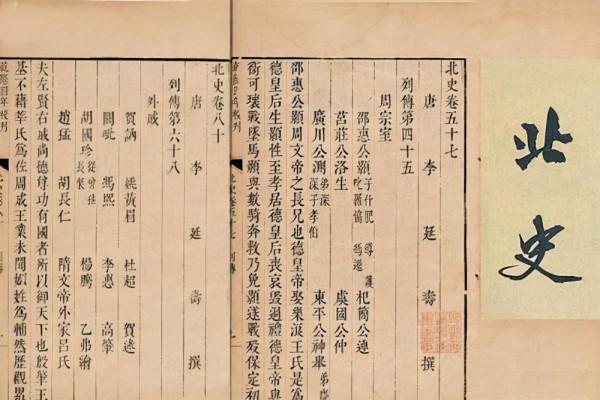 北史
北史卷五十七
唐 李 延 壽 撰
列傳第四十五
周宗室
邵惠公顥 子什肥 導 護 叱羅協 馮遷 杞簡公連
莒莊公洛生 虞國公仲
廣川公測 弟深 深子孝伯 東平公神舉 弟慶
邵惠公顥周文帝之長兄也德皇帝娶樂浪王氏是為
德皇后生顥性至孝居德皇后喪哀毀過禮德皇帝與
衛可瓌戰墜馬顥與數騎奔救乃免顥遂戰歿保定初
北史卷八十
唐 李 延 壽 撰
列傳第六十八
外戚
賀訥 姚黃眉 杜超 賀迷
閭毗 馮熙 李惠 高肇
胡國珍 從曾孫長粲 楊騰 乙弗繪
趙猛 胡長仁 隋文帝外家呂氏
夫左賢右戚尚德尊功有國者所以御天下也殷肇王
基不藉莘氏為佐周成王業未聞姒姓為輔然歷觀累